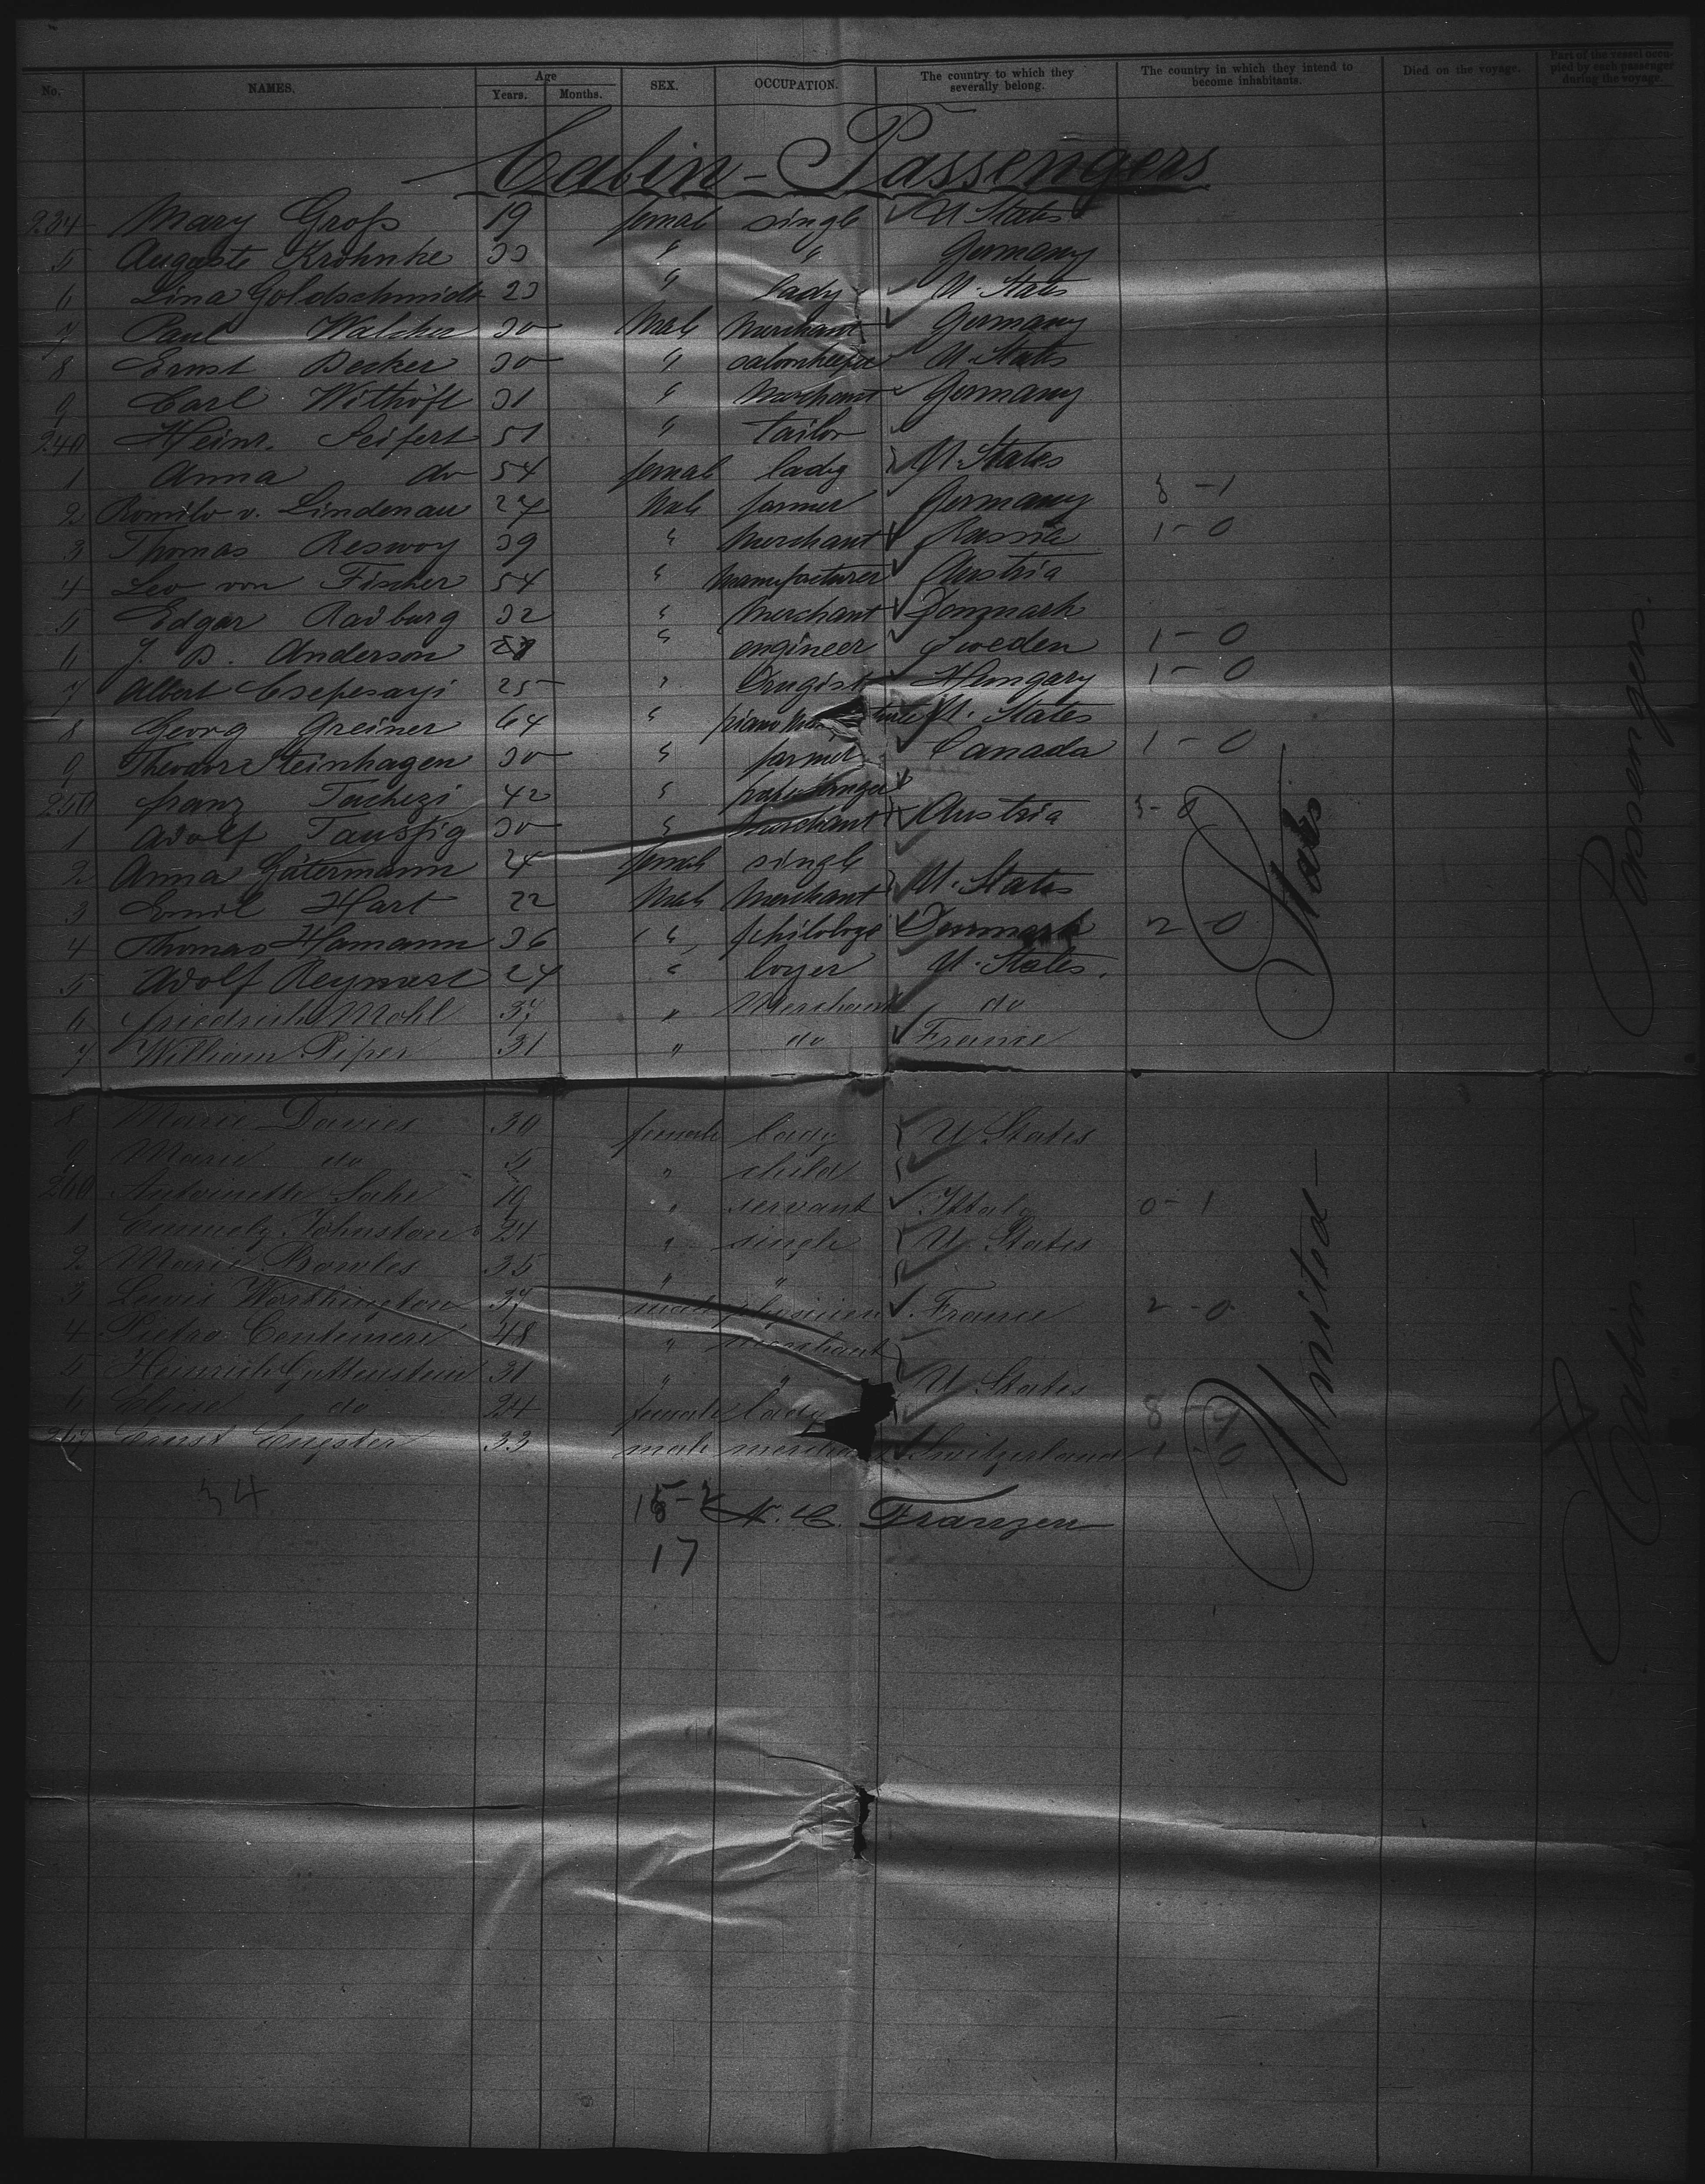 No. NAMES. Age Years. Months. SEX. OCCUPATION. The country to which they severally belong. The country in which they intend to become inhabitants. Died on the voyage. Part of the vessel occupied by each passenger during the voyage.
Cabin-Passengers
234 Mary Groß 19 female single U States
5 Auguste Krohnke 33 " " Germany
6 Lina Goldschmidt 23 " lady U. States
7 Paul Walcher 30 Male Merchant Germany
8 Ernst Becker 30 " saloonkeeper U. States
9 Carl Withöft 31 " Merchant Germany
240 Heinr. Seifert 51 " tailor
1 Anna do 54 female lady U. States
2 Romilo v. Lindenau 24 Male farmer Germany 8-1
3 Thomas Reswoy 39 " Merchant Russia 1-0
4 Leo von Fischer 54 " Manufacturer Austria
5 Edgar Radburg 32 " Merchant Denmark
6 J. B. Anderson " engineer Sweden 1-0
7 Albert Csepesayi 25 " Drugist Hungary 1-0
8 Georg Greiner 64 " piano U. States
9 Theodor Steinhagen 30 " farmer Canada 1-0
250 Franz Tachezi 42 "
1 Adolf Taussig 30 " Merchant Austria
2 Anna Gütermann 24 female single
3 Emil Hart 22 Male Merchant U. States
4 Thomas Hamann 36 " philologe Denmark 2-0
5 Adolf Reymert 24 " loyer U. States.
6 Friedrich Mohl " Merchant do
7 William Piper 31 " do France
8 Marie Davies 30 female lady U States
9 Marie do 5 " child
260 Antoinette 19 " servant Ittaly 0-1
1 Johnston 24 " single U. States
2 Marie Bowles 35 " "
3 Lewis Worthington 37 male physicien France 2-0
4 Pietro Centemeri 48 " merchant
5 Heinrich Guttenstein 31 " " U States
6 Elise do 24 female lady
267 Ernst Engster 33 male merchant Switzerland 1-0
United States
Cabin Passengers
34
H. C. Franzen
17